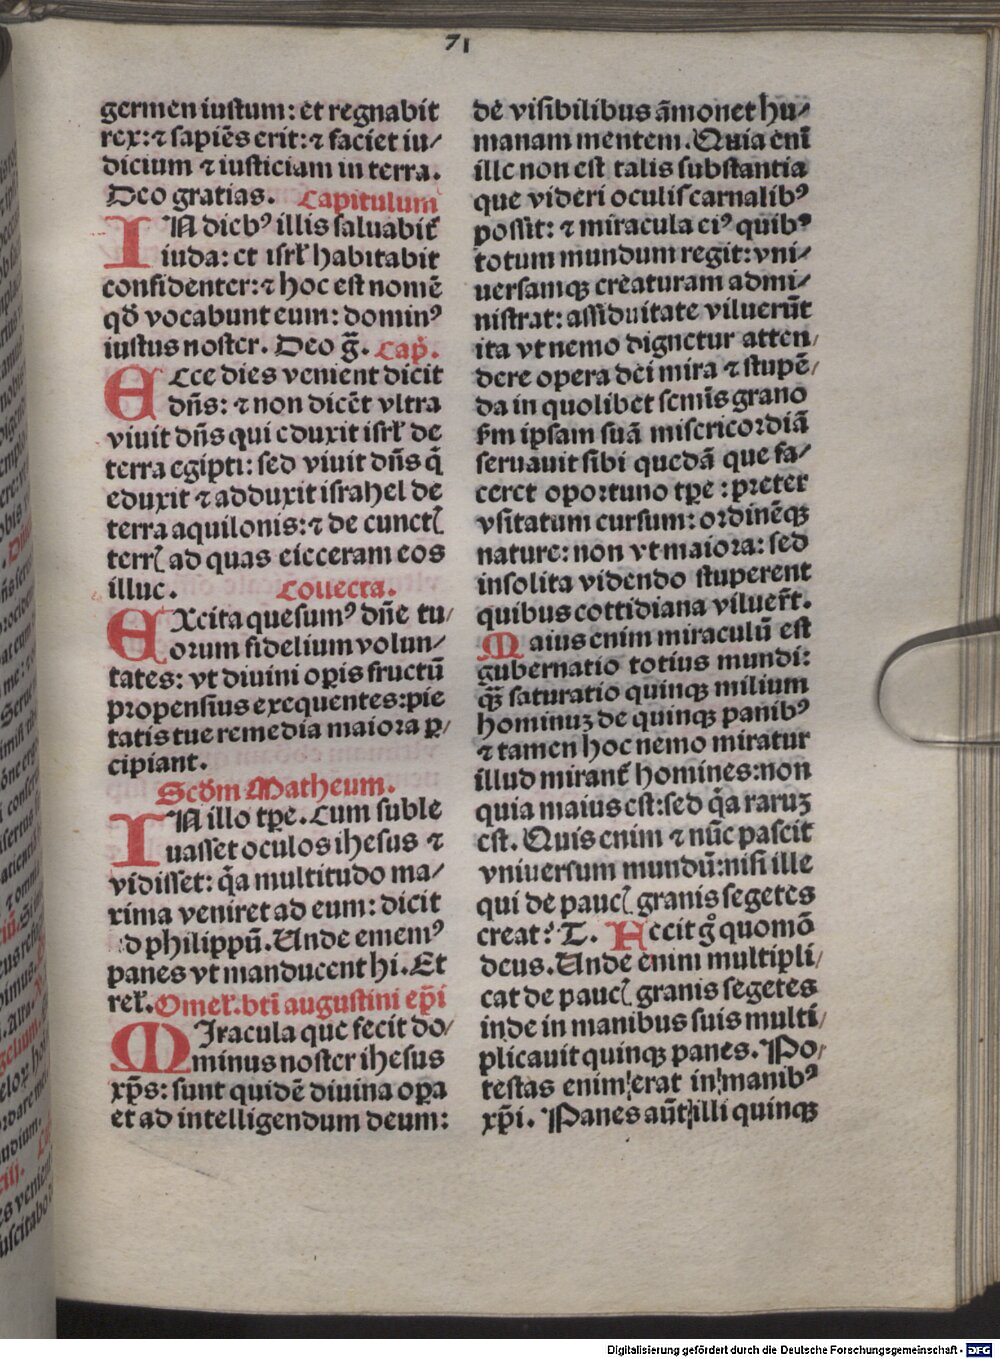 71
germen iustum: et regnabit
rex: ⁊ sapiēs erit: ⁊ faciet iu⸗
dicium ⁊ iusticiam in terra.
Deo gratias. Capitulum
IN diebꝰ illis saluabit᷑
iuda: et isrl̄ habitabit
confidenter: ⁊ hoc est nomē
qḋ vocabunt eum: dominꝰ
iustus noster. Deo g̃. Cap̄.
Ecce dies venient dicit
dn̄s: ⁊ non dicēt vltra
viuit dn̄s qui eduxit isrl̄ de
terra egipti: sed viuit dn̄s q̄
eduxit ⁊ adduxit israhel de
terra aquilonis: ⁊ de cunctꝭ
terrꝭ ad quas eieceram eos
illuc. Collecta.
EXcita quesumꝰ dn̄e tu⸗
orum fidelium volun⸗
tates: vt diuini operis fructū
propensius exequentes: pie
tatis tue remedia maiora ꝑ⸗
cipiant.
Scd̄m Matheum.
IN illo tꝑe. Cum suble
uasset oculos ihesus ⁊
vidisset: q̄a multitudo ma⸗
xima veniret ad eum: dicit
d philippū. Unde ememꝰ
panes vt manducent hi. Et
rel̄. Omel̄. bt̄i augustini ep̄i
MIracula que fecit do⸗
minus noster ihesus
xp̄s: sunt quidē diuina oꝑa
et ad intelligendum deum:
de visibilibus āmonet hu⸗
manam mentem. Quia enī
ille non est talis substantia
que videri oculis carnalibꝰ
possit: ⁊ miracula eiꝰ quibꝰ
totum mundum regit: vni⸗
uersamqꝫ creaturam admi⸗
nistrat: assiduitate viluerūt
ita vt nemo dignetur atten⸗
dere opera dei mira ⁊ stupē⸗
da in quolibet semīs grano
ẜm ipsam suā misericordiā
seruauit sibi quedā que fa⸗
ceret oportuno tꝑe: preter
vsitatum cursum: ordinēqꝫ
nature: non vt maiora: sed
insolita videndo stuperent
quibus cottidiana viluer̄t.
Maius enim miraculū est
gubernatio totius mundi:
qᷓꝫ saturatio quinqꝫ milium
hominuꝫ de quinqꝫ panibꝰ
⁊ tamen hoc nemo miratur
illud mirant᷑ homines: non
quia maius est: sed q̄a raruꝫ
est. Quis enim ⁊ nūc pascit
vniuersum mundū: nisi ille
qui de paucꝭ granis segetes
creat? T. Fecit gͦ quomō
deus. Unde enim multipli⸗
cat de paucꝭ granis segetes
inde in manibus suis multi⸗
plicauit quinqꝫ panes. Po⸗
testas enim erat in manibꝰ
xp̄i. Panes aūt illi quinqꝫ
Digitalisierung gefördert durch die Deutsche Forschungsgemeinschaft - DFG